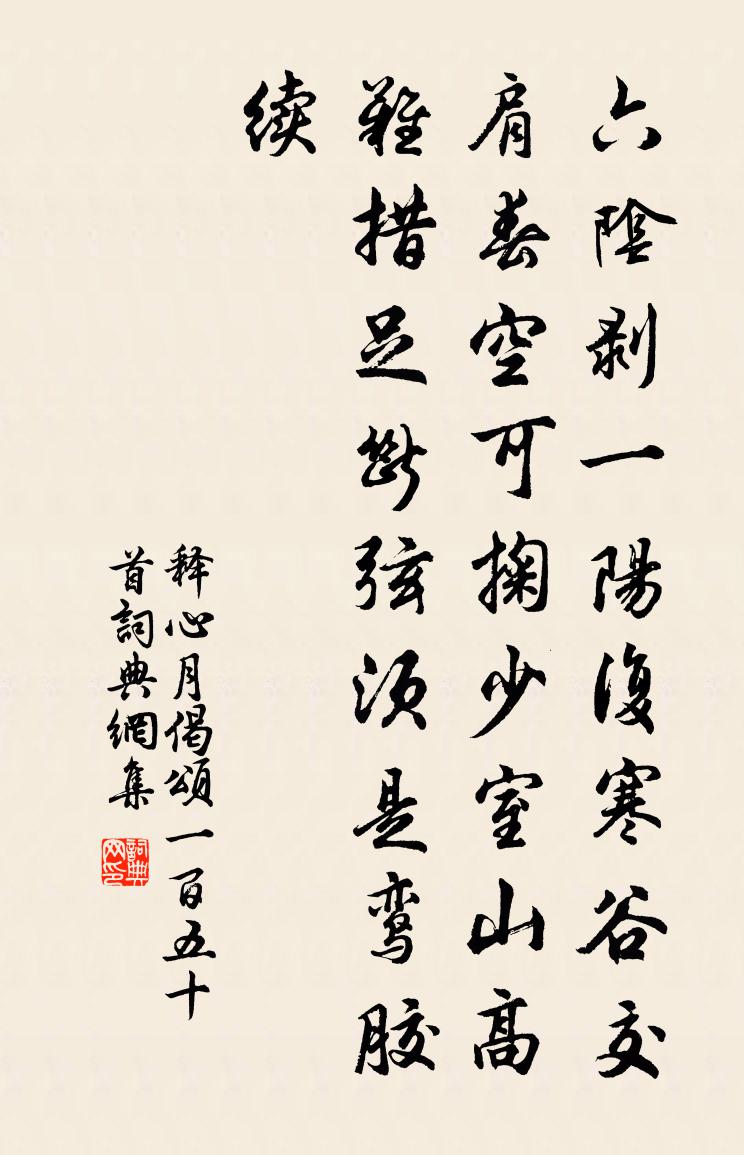 六陰剥一陽復寒谷交
肩春空可掬少室山高
難措足斷弦须是鸾胶
续
释心月偈頌一百五十
首詞典網集
詞典
网印